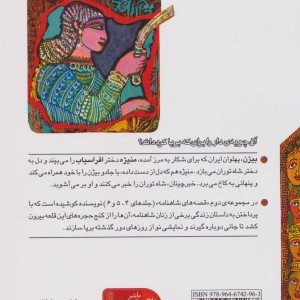 آن چوبه‌ی دار را برای که برپا کرده‌اند؟
بیژن، پهلوان ایران که برای شکار به مرز آمده، منیژه دختر افراسیاب را می‌بیند و دل به
دختر شاه توران می‌بازد. منیژه هم که از دست داده، با جادو بیژن را با خود همراه می‌کند
و پنهانی به کاخ می‌برد. خبرچینان، شاه توران را خبر می‌کنند و او بر می‌آشوبد.
در مجموعه‌ی دوم «قصه‌های شاهنامه» (جلدهای ۴، ۵ و ۶) نویسنده کوشیده است که با
پرداختن به داستان زندگی برخی از زنان شاهنامه، آن‌ها را از کنج حجره‌های این قلعه بیرون
کشد تا جانی دوباره گیرند و نمایشی نو از روزهای دور گذشته برپا سازند.
ISBN 978-964-6742-96-3